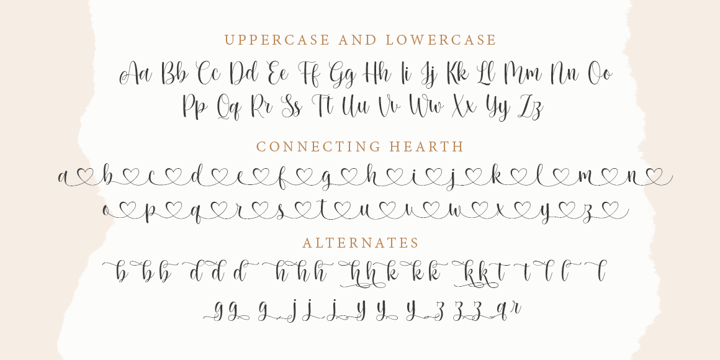 UPPERCASE AND LOWERCASE
Aa Bb Cc Dd Ee Ff Gg Hh Ii Jj Kk Ll Mm Nn Oo
Pp Qq Rr Ss Tt Uu Vv Ww Xx Yy Zz
CONNECTING HEARTH
a♡b♡c♡d♡e♡f♡g♡h♡i♡j♡k♡l♡m♡n♡
o♡p♡q♡r♡s♡t♡u♡v♡w♡x♡y♡z♡
ALTERNATES
b b b d d d h h h h h k k k k k t t l l l
g g g j j j y y y z z z z q r